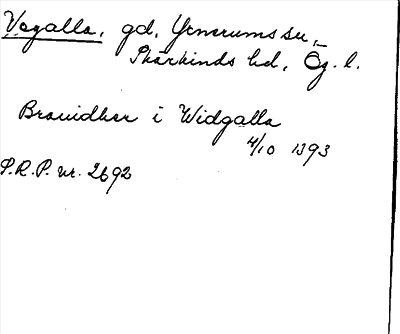 Vagalla, gd, Yxnerums sn,
Skärkinds hd, Ög. l.
Brauidher i Widgalla
4/10 1393
S.R.P. nr. 2692